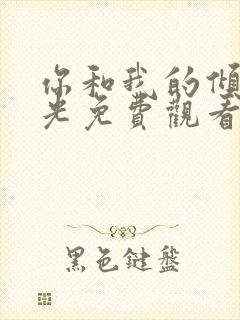 你和我的傾
光免費觀看
黑色鍵盤